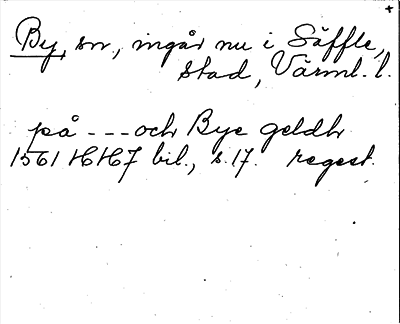 By, sn, ingår nu i Säffle,
stad, Värml. l.
på --- och Bye geldh
1561 HH7 bil., s. 17. regest.